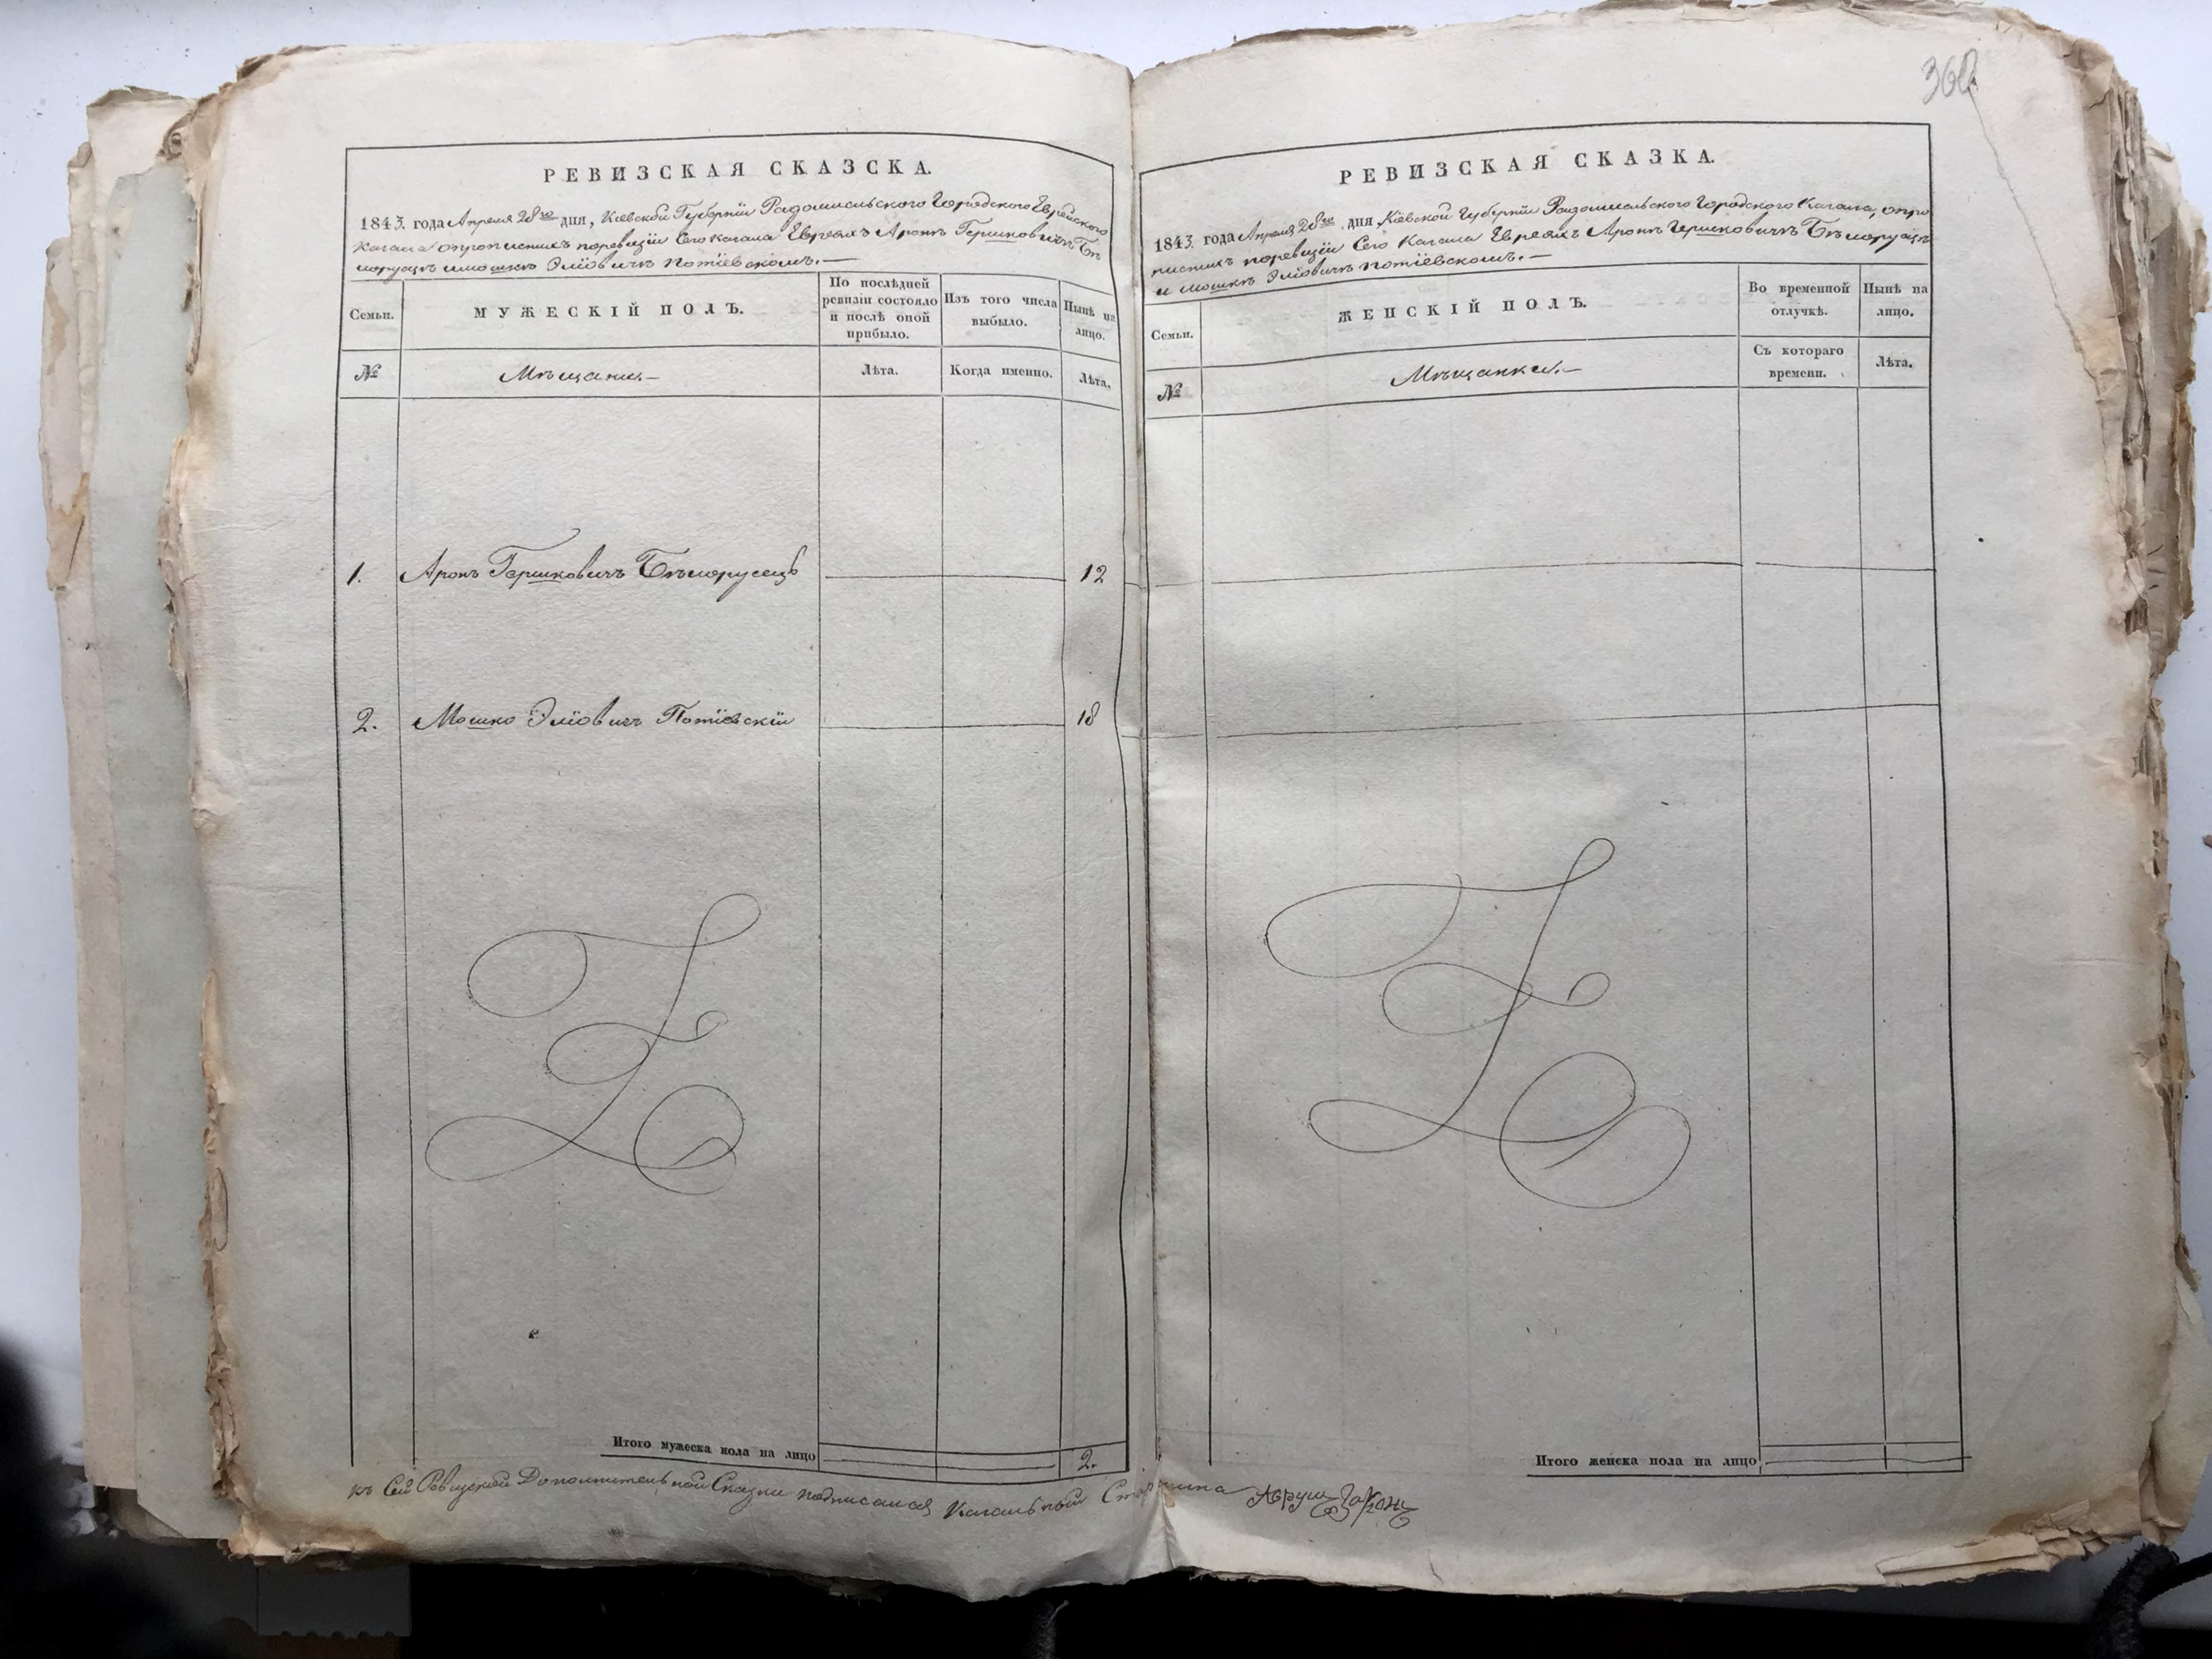 360
РЕВИЗСКАЯ СКАЗСКА.
1843. года Апреля 28го дня, Кіевской Губерніи Радомысльского Городского Еврейского
Кагала опрописныхъ поревизіи Сего Кагала Евреяхъ Аронѣ Гершковичѣ Бѣ
лорусцѣ и Мошкѣ Эліовичѣ Потіевскомъ. —
Семьи.
МУЖЕСКІЙ ПОЛЪ.
По послѣдней ревизіи состояло и послѣ оной прибыло.
Изъ того числа выбыло.
Нынѣ на лицо.
№
Мѣщани. —
Лѣта.
Когда именно.
Лѣта.
1. Аронъ Гершковичъ Бѣлорусецъ 12
2. Мошко Эліовичъ Потіевскій 18
Итого мужеска пола на лицо 2.
РЕВИЗСКАЯ СКАЗКА.
1843. года Апреля 28го дня Кіевской Губерніи Радомысльского Городского Кагала, опро
писныхъ поревизіи Сего Кагала Евреяхъ Аронѣ Гершковичѣ Бѣлорусцѣ
и Мошкѣ Эліовичѣ Потіевскомъ. —
Семьи.
ЖЕНСКІЙ ПОЛЪ.
Во временной отлучкѣ.
Нынѣ на лицо.
№
Мѣщанки. —
Съ котораго времени.
Лѣта.
Итого женска пола на лицо
Къ Сей Ревизской Дополнительной Сказки подписался Кагальный Старшина